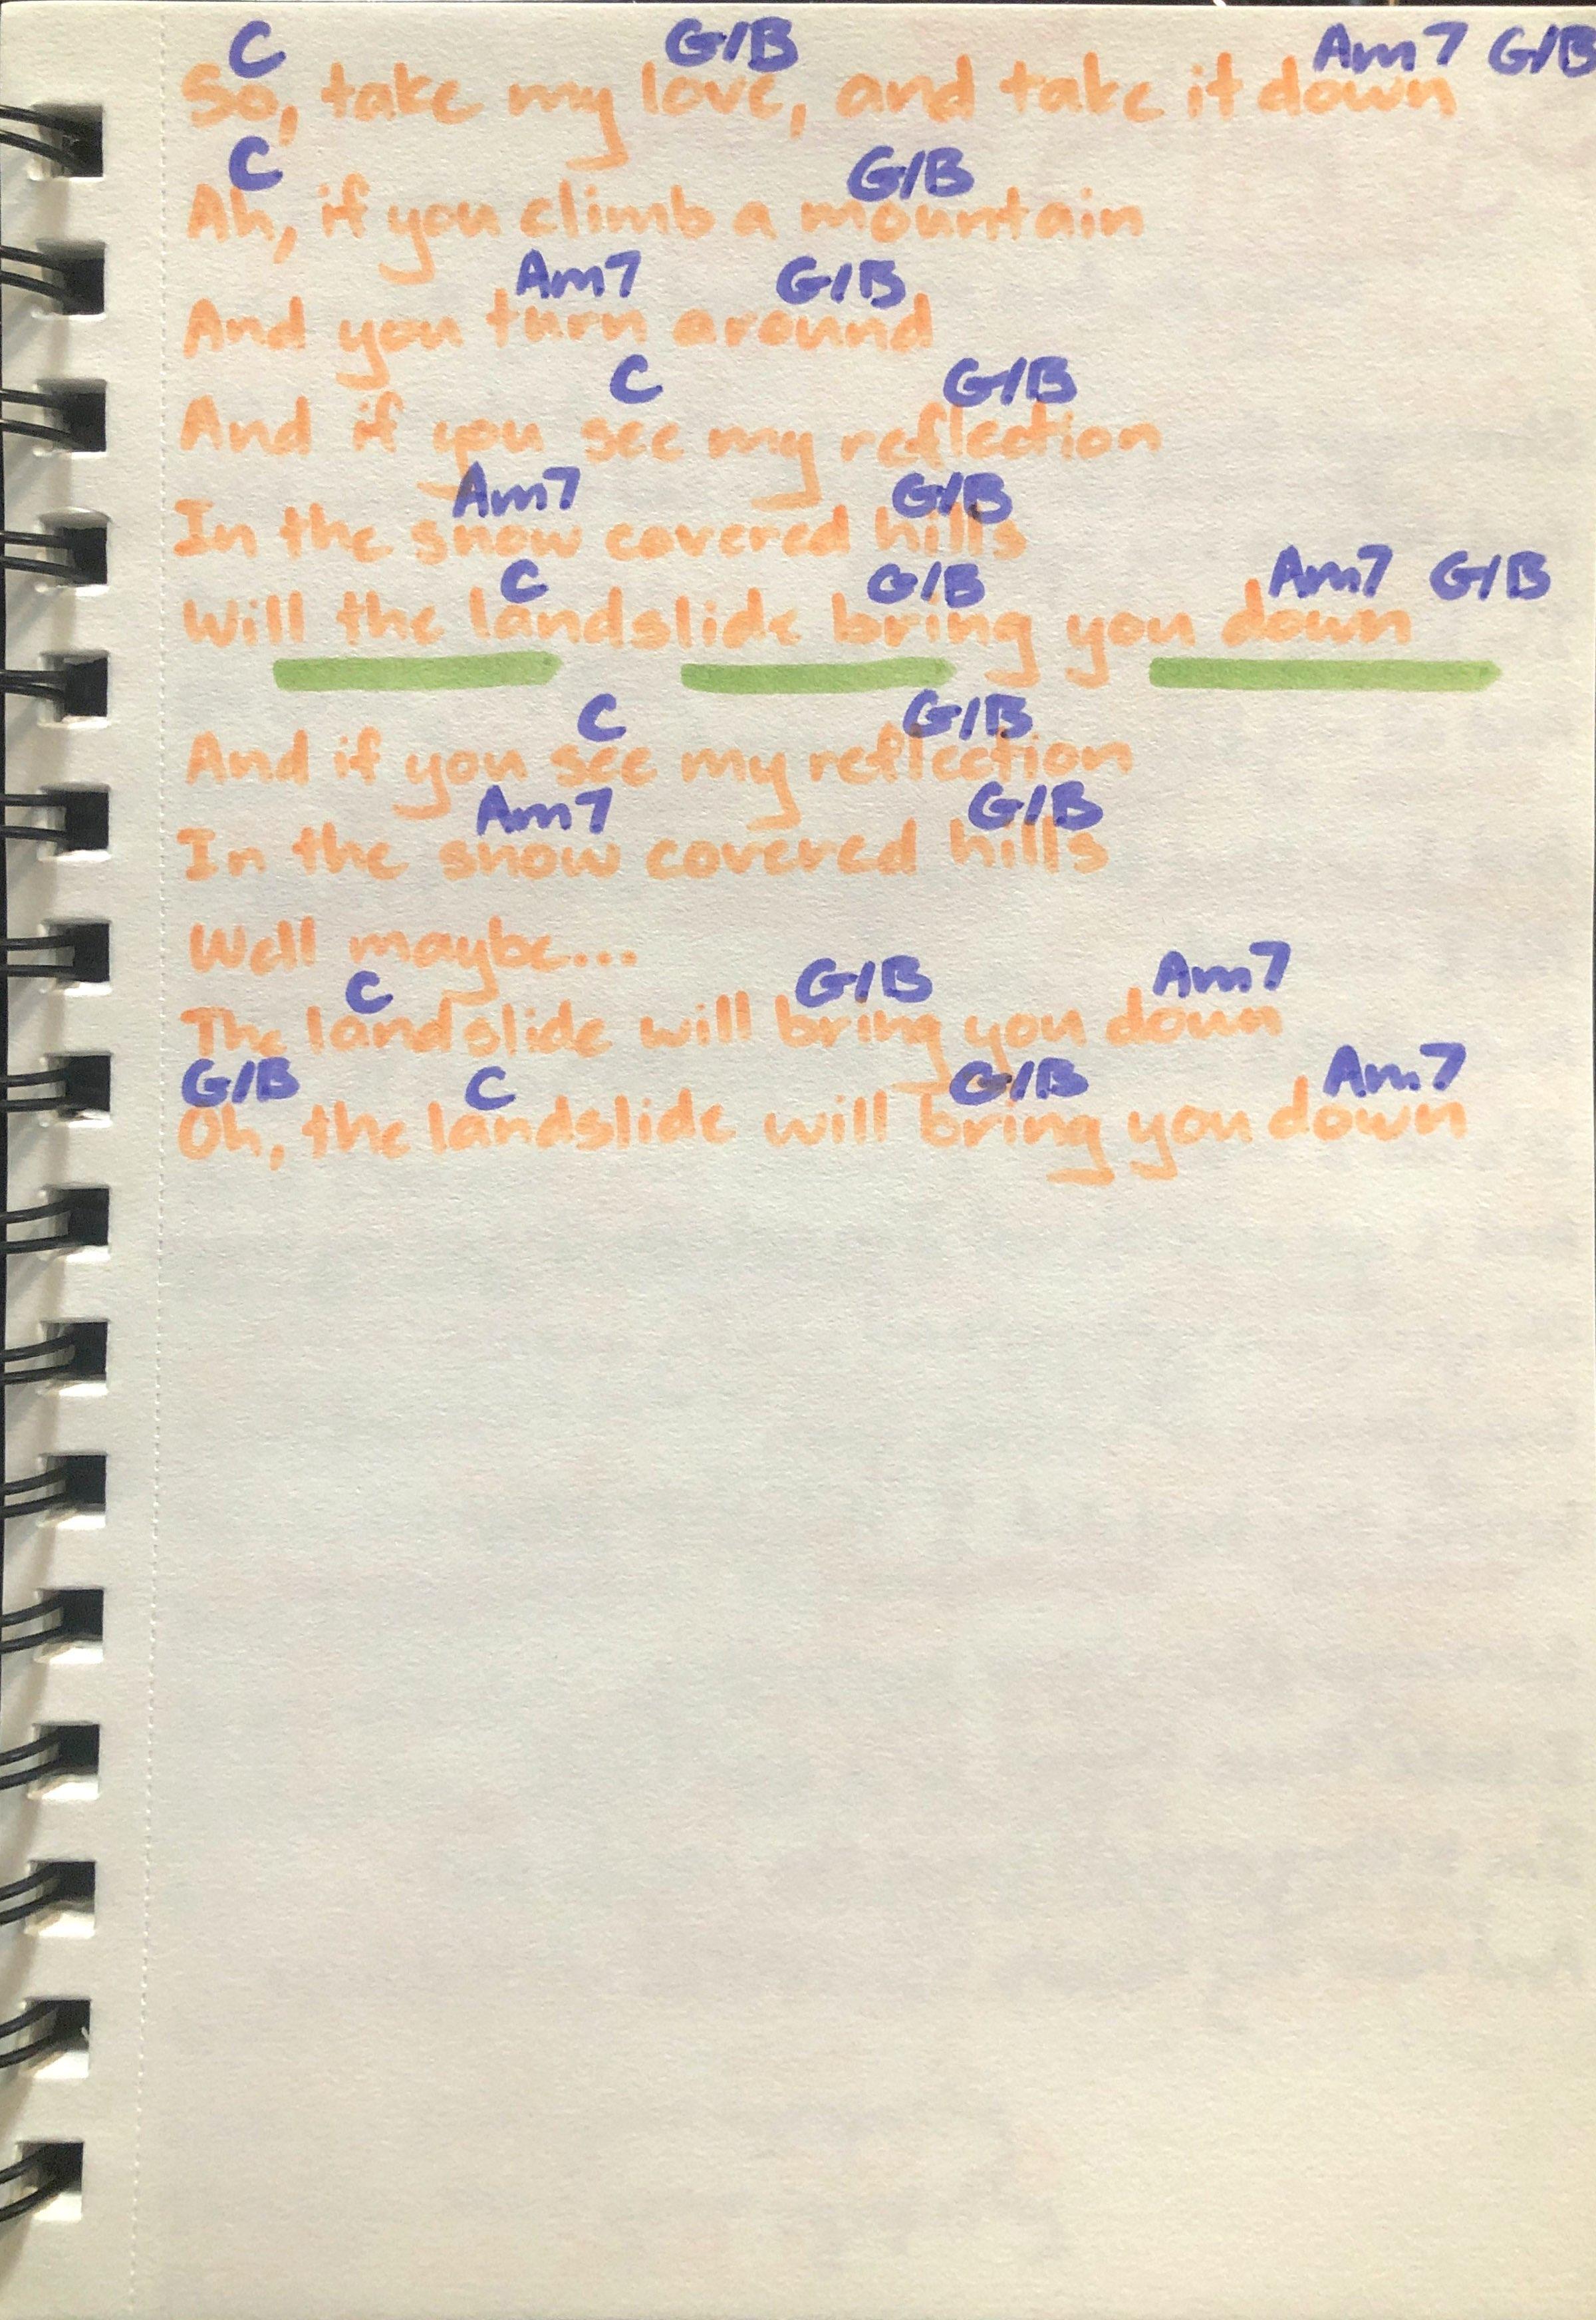 C G/B Am7 G/B
So, take my love, and take it down
C G/B
Ah, if you climb a mountain
Am7 G/B
And you turn around
C G/B
And if you see my reflection
Am7 G/B
In the snow covered hills
C G/B Am7 G/B
Will the landslide bring you down
C G/B
And if you see my reflection
Am7 G/B
In the snow covered hills
Well maybe...
C G/B Am7
The landslide will bring you down
G/B C G/B Am7
Oh, the landslide will bring you down